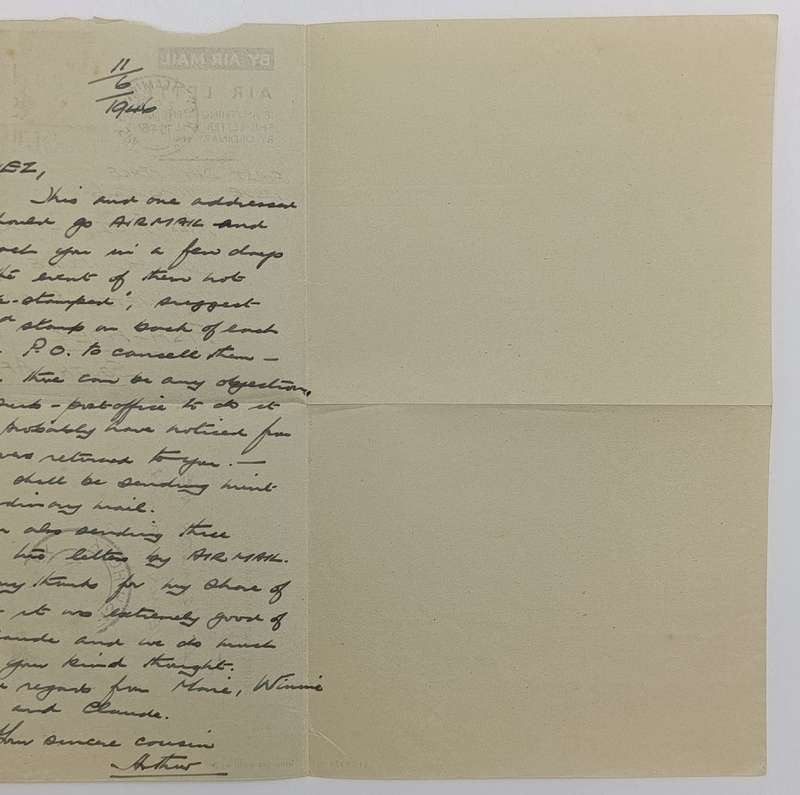 11/6/1946
EZ,
This and one addressed
hould go AIRMAIL and
you in a few days
event of them not
-stamped", suggest
stamp on back of each
P.O. to cancell them —
there can be any objection,
sub-postoffice to do it
probably have noticed from
were returned to you. —
shall be sending mint
dinary mail.
also sending these
two letters by AIRMAIL.
thanks for my share of
it was extremely good of
aude and we do much
your kind thought.
regards from Marie, Winnie
and Claude.
Your sincere cousin
Arthur
BY AIR MAIL
AIR LET